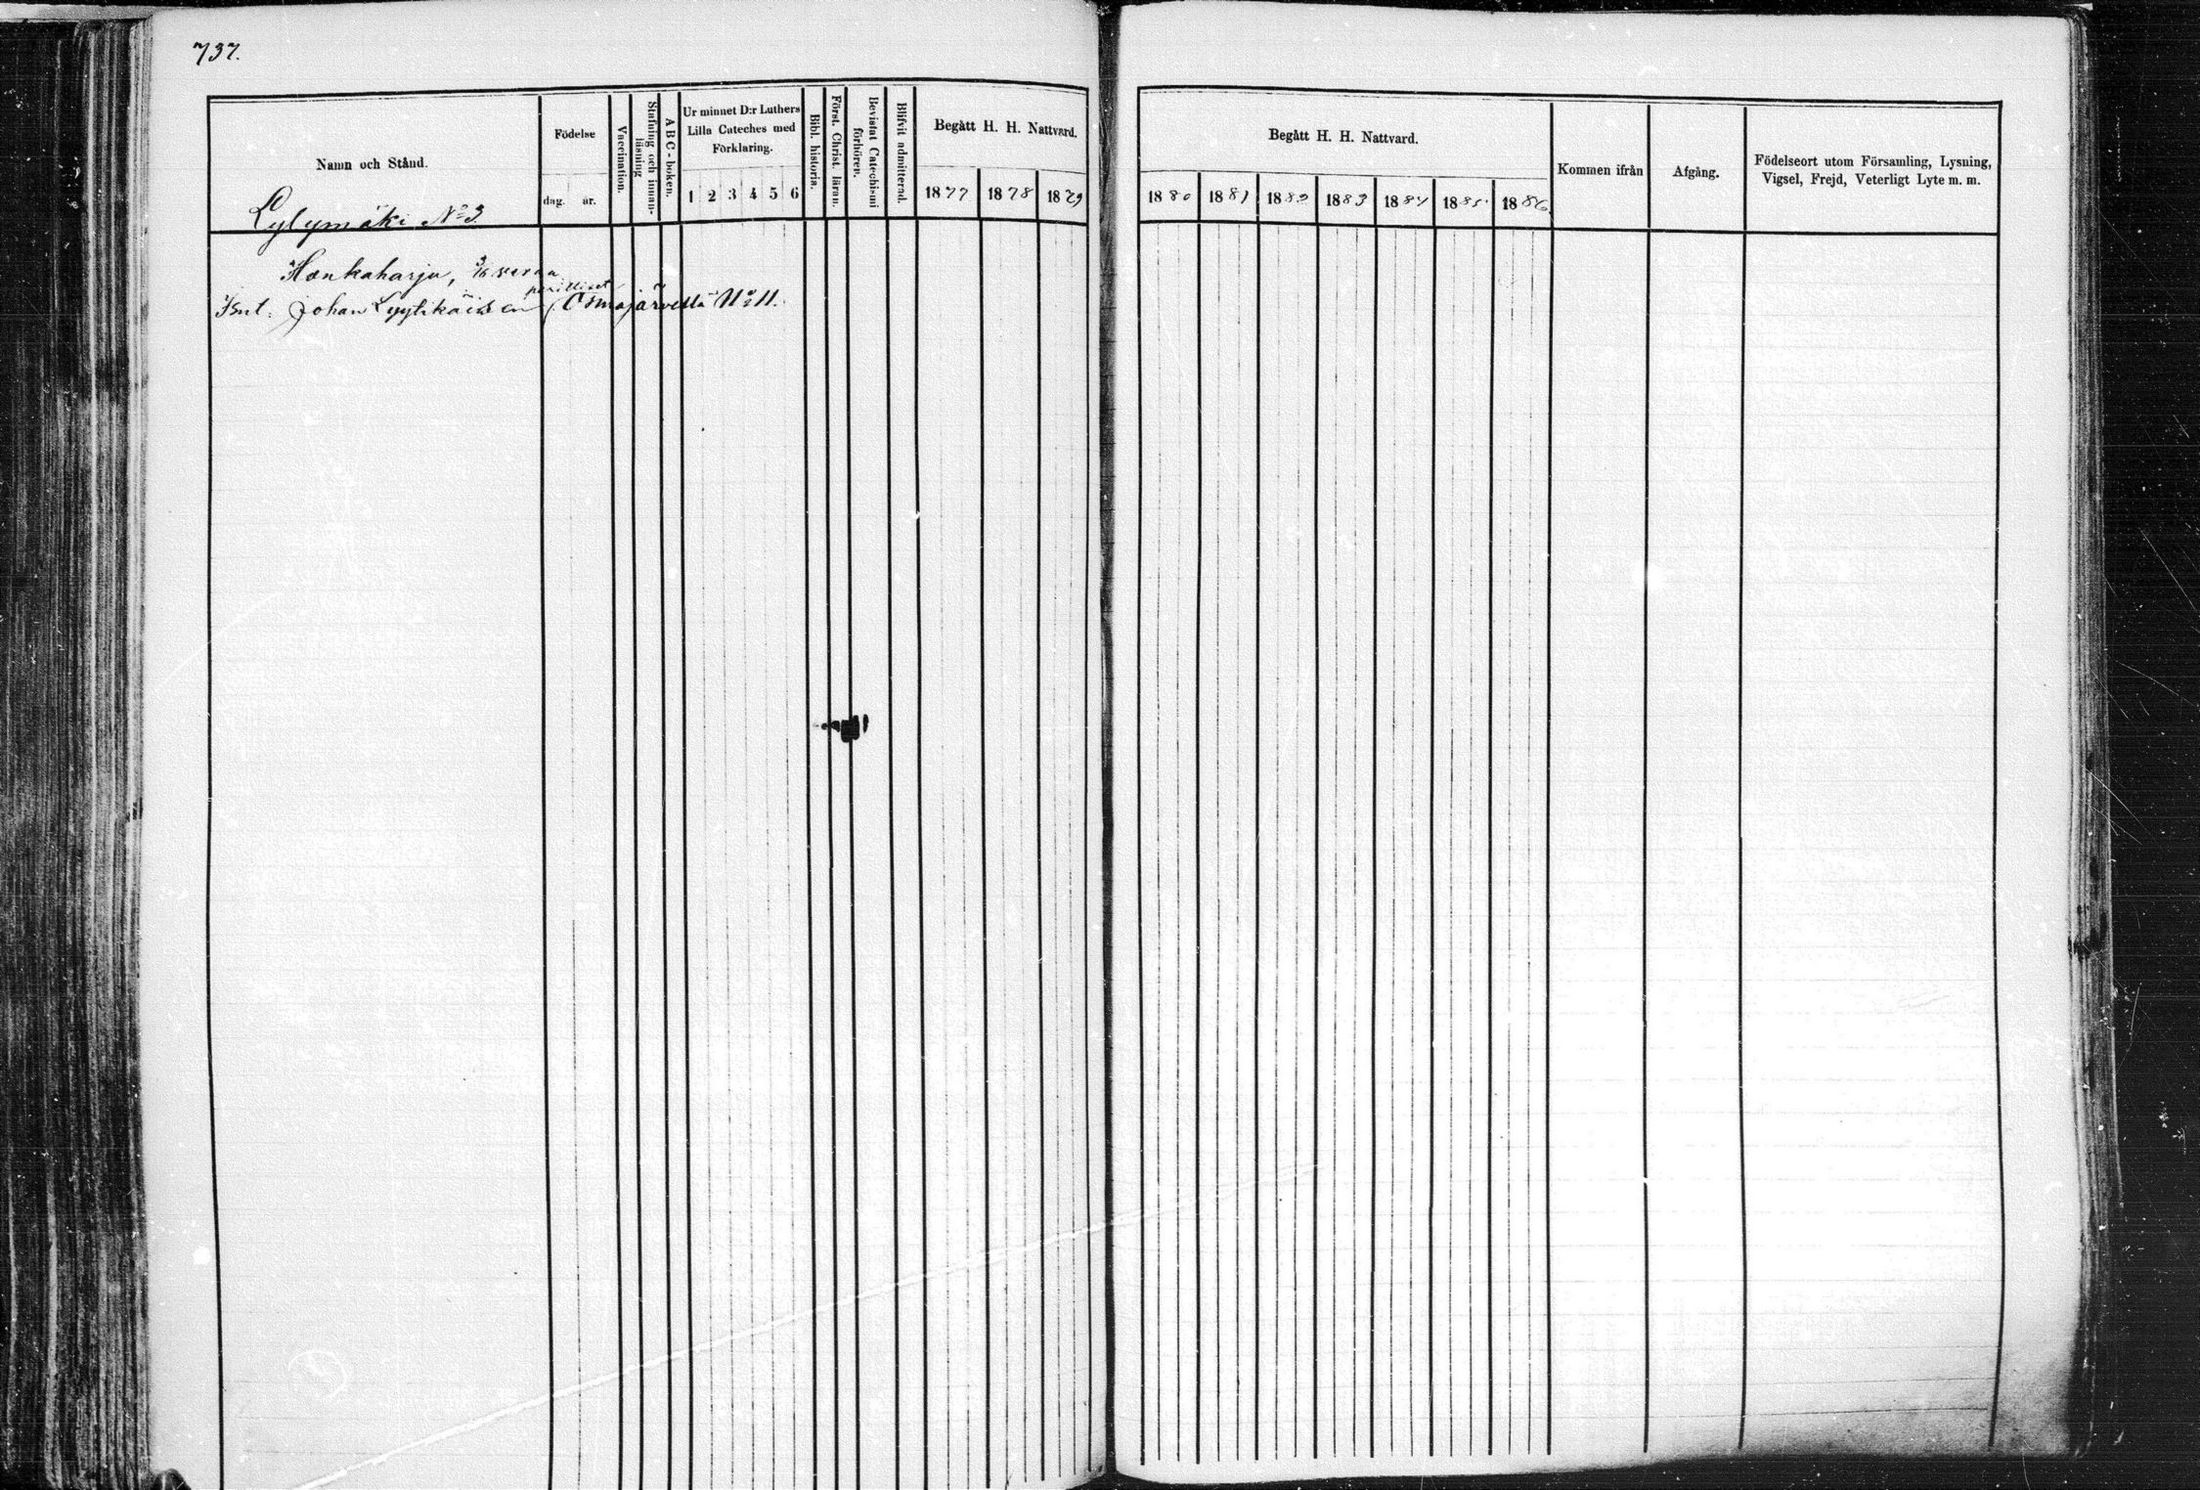 737.
Namn och Stånd.
Födelse
dag. år.
Vaccination.
Stafning och innan-
läsning
A B C-boken.
Ur minnet D:r Luthers
Lilla Cateches med
Förklaring.
1 2 3 4 5 6
Bibl. historia.
Först. Christ. läran.
Bevistat Catechismi
förhören.
Blifvit admitterad.
Begått H. H. Nattvard.
1877 1878 1879
Begått H. H. Nattvard.
1880 1881 1882 1883 1884 1885 1886
Kommen ifrån
Afgång.
Födelseort utom Församling, Lysning,
Vigsel, Frejd, Veterligt Lyte m. m.
Lylymäki No 3
Honkaharju,
perilliset
Johan Lyytikäisen Osmajärvellä No 11.